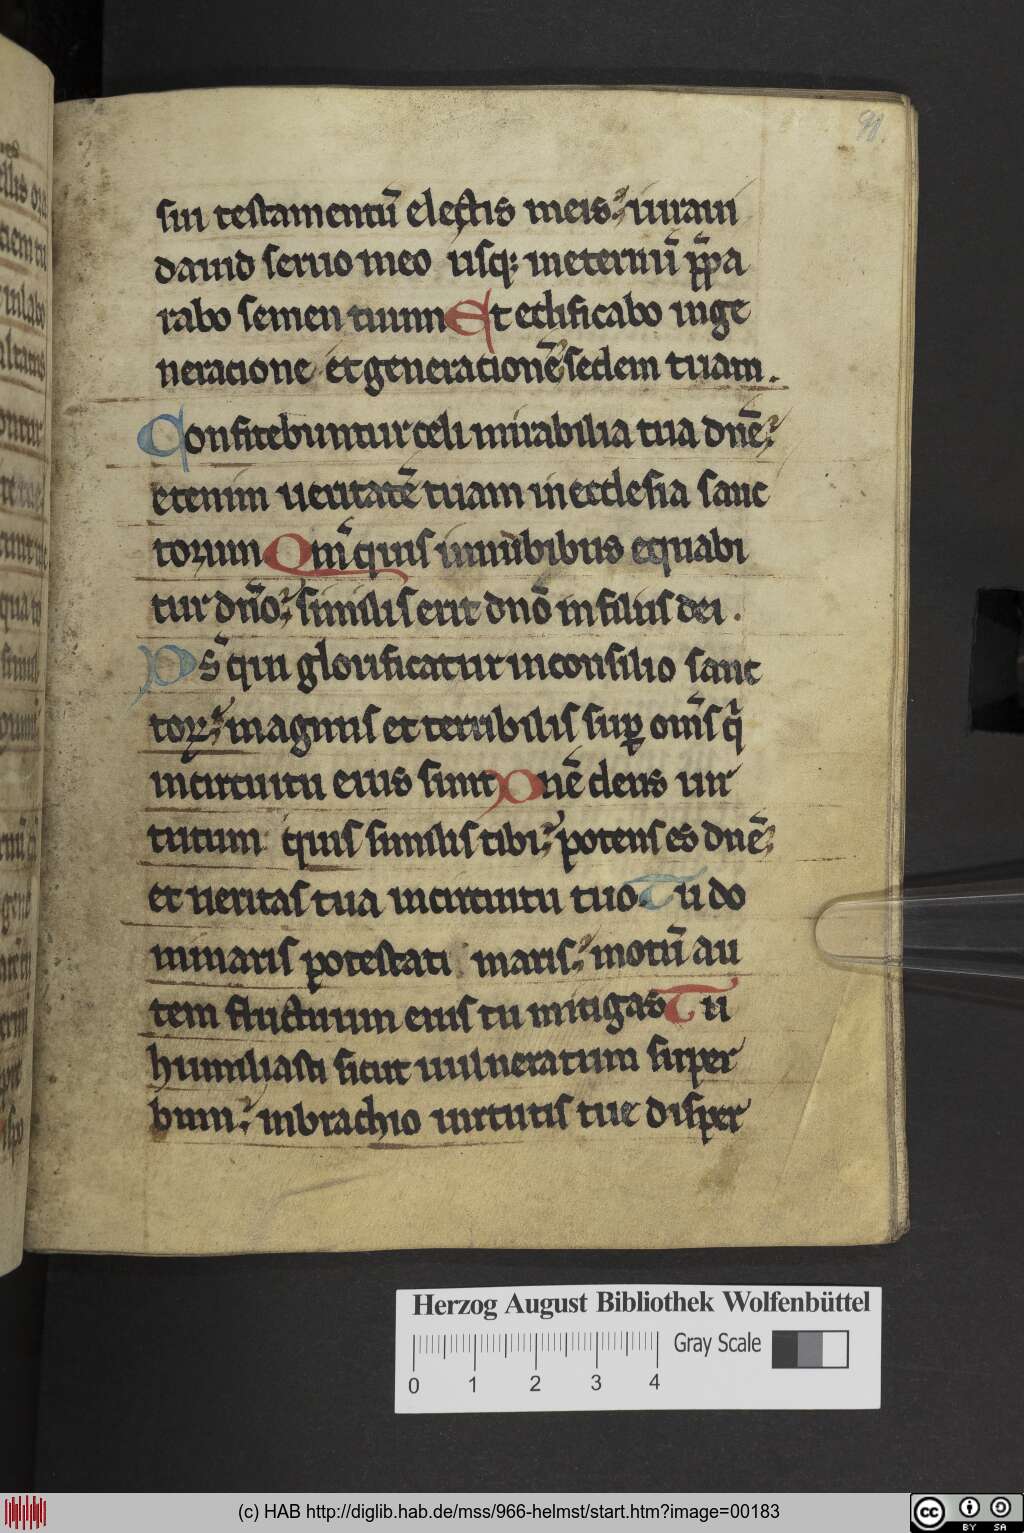 91.
sui testamentū electis meis iuraui
dauid seruo meo usq; ineternū ꝓpa
rabo semen tuum Et edificabo inge
neracione et generacionē sedem tuam.
Confitebuntur celi mirabilia tua dn̄e
etenim ueritatē tuam in ecclesia sanc
torum Qm̄ quis in nubibus equabi
tur dn̄o similis erit dn̄o in filiis dei.
Ds̄ qui glorificatur in consilio sanc
toꝝ magnus et terribilis suꝑ om̄s q̄
in circuitu eius sunt Dn̄e deus uir
tutum quis similis tibi potens es dn̄e
et ueritas tua in circuitu tuo. Tu do
minaris potestati maris motū au
tem fluctuum eius tu mitigas Tu
humiliasti sicut uulneratum super
bum in brachio uirtutis tue disper
Herzog August Bibliothek Wolfenbüttel
Gray Scale
0 1 2 3 4
(c) HAB http://diglib.hab.de/mss/966-helmst/start.htm?image=00183
cc BY SA